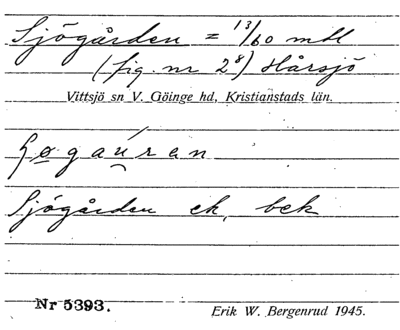 Sjögården = 13/60 mtl
(fig. nr 28) Hårsjö
Vittsjö sn V. Göinge hd, Kristianstads län.
Sjögården ek, bek
Nr 5393.
Erik W. Bergenrud 1945.